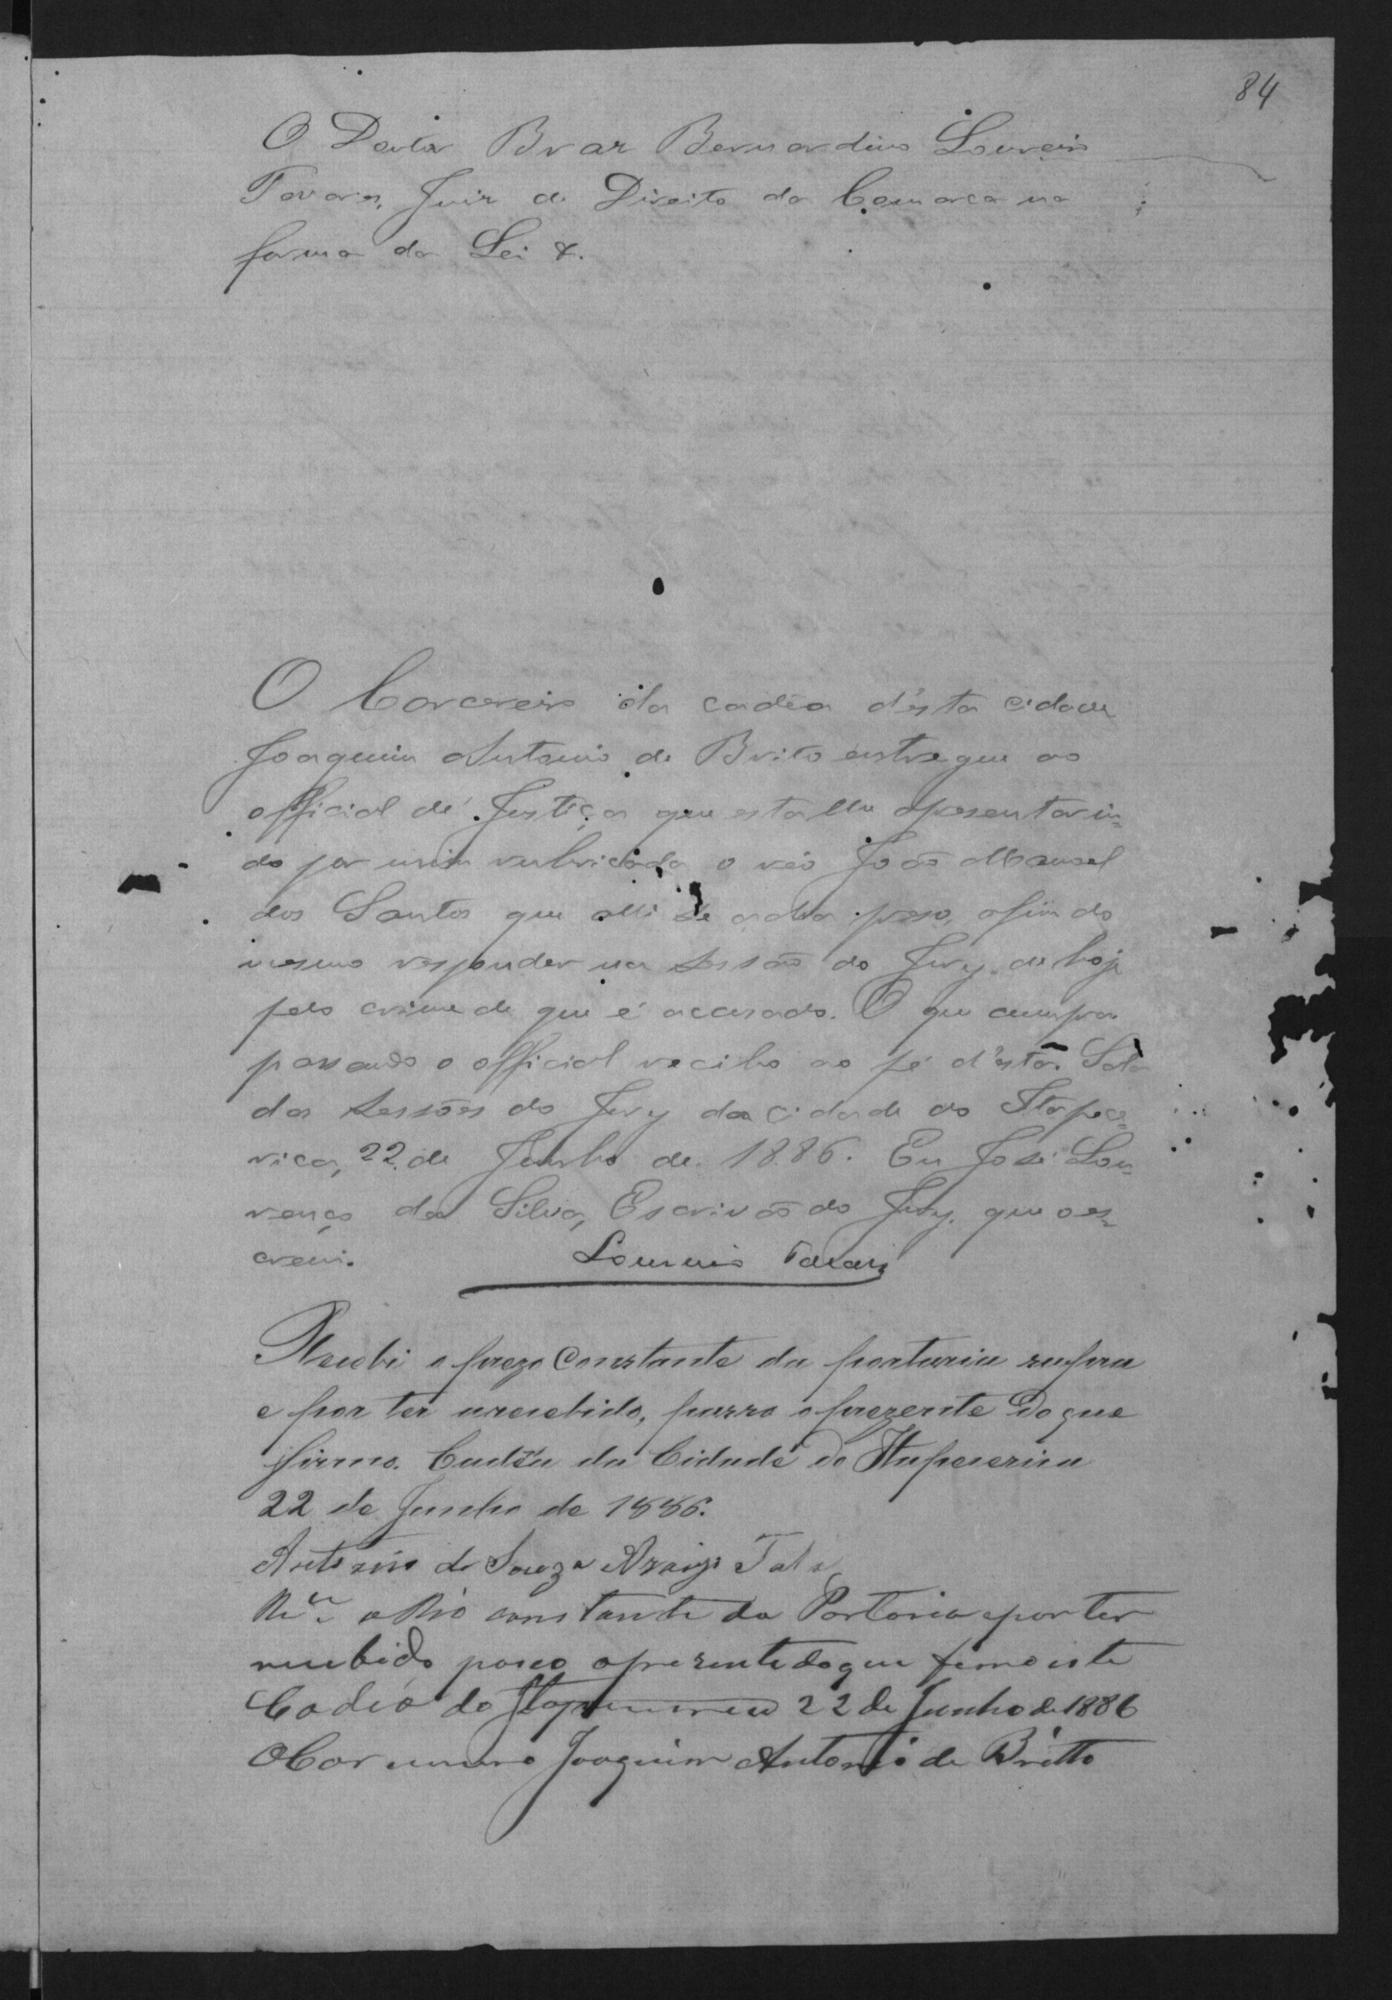 84
O Doutor Braz Bernardino Loureiro
Tavares, Juiz de Direito da Comarca na
forma da Lei &.
O Carcereiro da cadêa d'esta cidade
Joaquim Antonio de Brito entregue ao
official de Justiça que esta lhe apresentar in-
do por mim rubricada o réo João Manoel
dos Santos que alli se acha preso, afim do
mesmo responder na sessão do Jury de hoje
pelo crime de que é accusado. O que cumpra
passando o official recibo ao pé d'esta. Sala
das sessões do Jury da cidade do Itapece-
rica, 22 de Junho de 1886. Eu José Lou-
renço da Silva, Escrivão do Jury, que o es-
crevi. Loureiro Tavares
Recebi o prezo Constante da portaria supra
e por ter arecebido, passo o prezente do que
firmo. Cadêa da Cidade do Itapecerica
22 de Junho de 1886.
Antonio de Souza Araujo
o Réo constante da Portaria epor ter
recebido paso oprezente doque firmo este
Cadea do Itapecerica 22 de Junho de 1886
OCarcereiro Joaquim Antonio de Britto